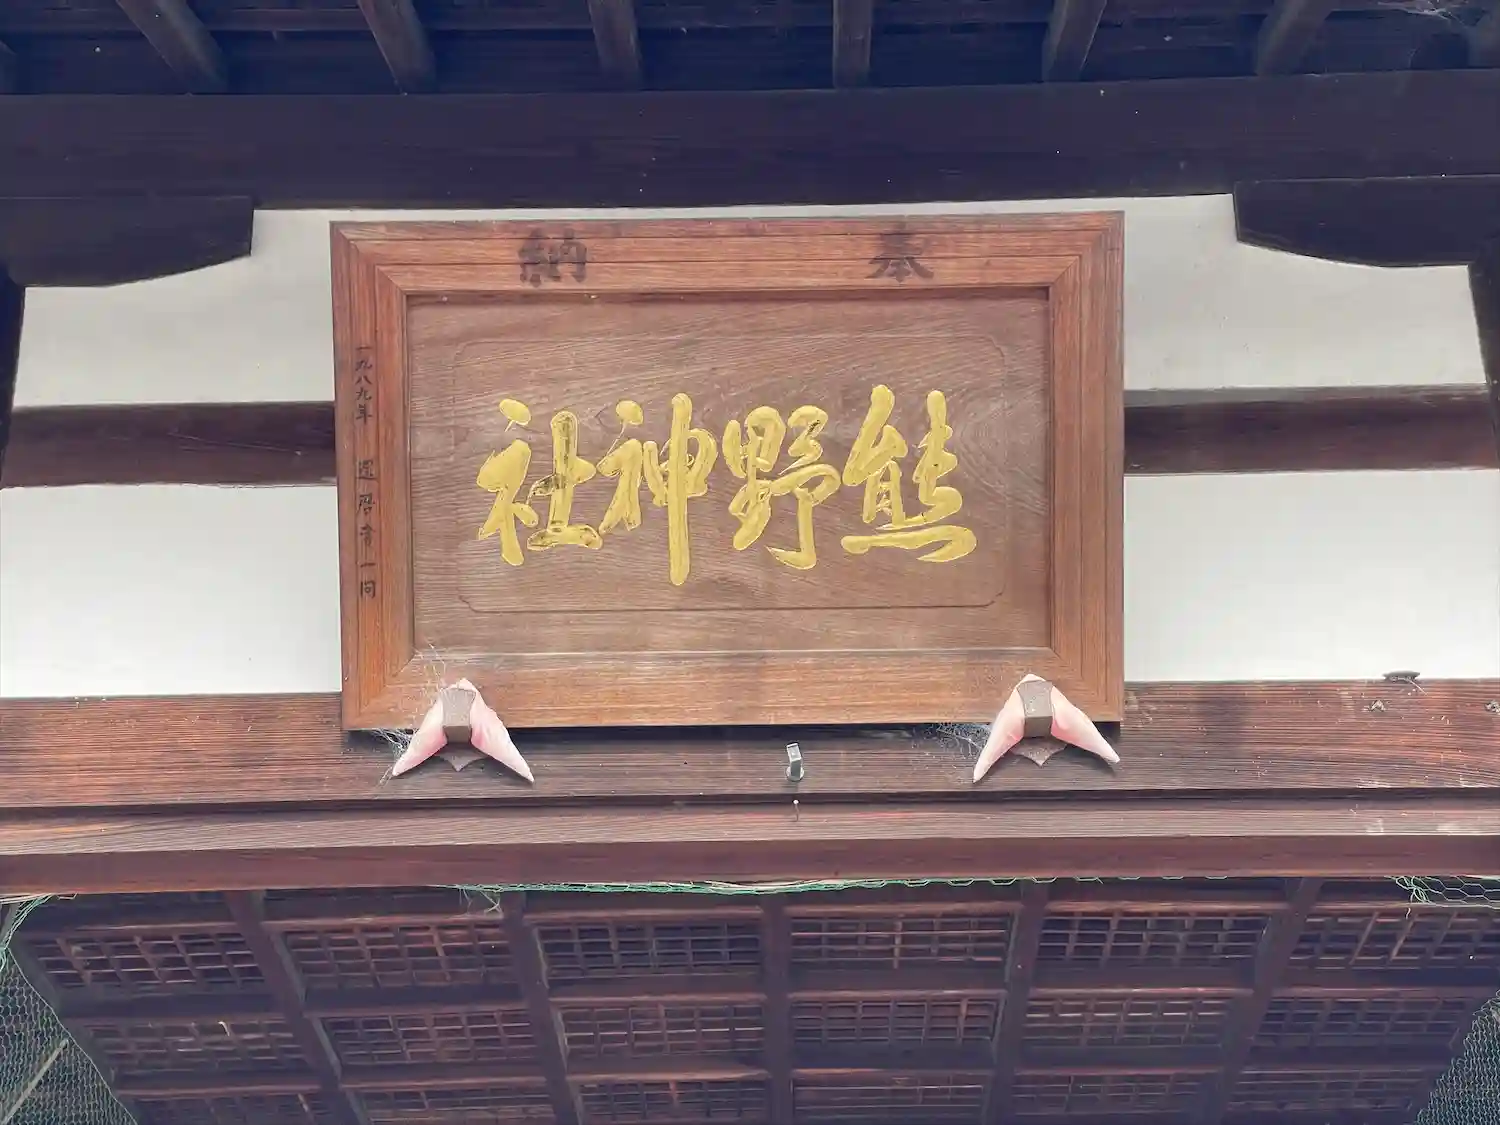 奉納
熊野神社
一九八九年 還暦者一同